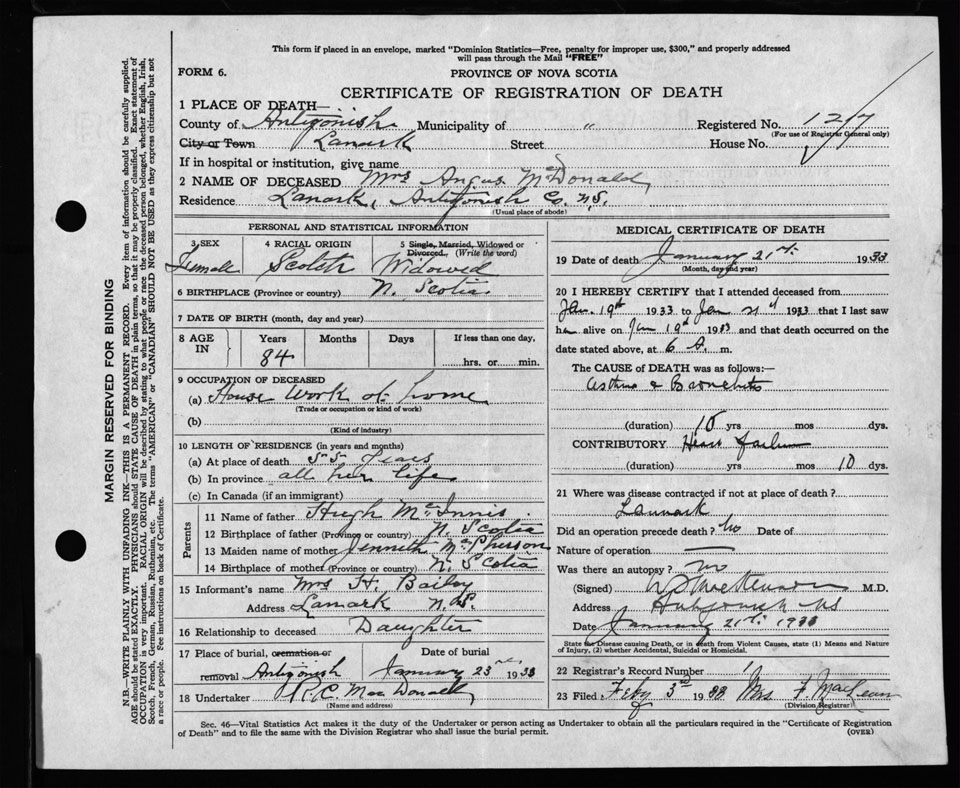 This form if placed in an envelope, marked "Dominion Statistics—Free, penalty for improper use, $300," and properly addressed
will pass through the Mail "FREE"
FORM 6.
PROVINCE OF NOVA SCOTIA
CERTIFICATE OF REGISTRATION OF DEATH
1 PLACE OF DEATH—
County of Antigonish Municipality of " Registered No. 1217
(For use of Registrar General only)
City or Town Lanark Street House No.
If in hospital or institution, give name
2 NAME OF DECEASED Mrs Angus McDonald
Residence Lanark, Antigonish Co. N.S.
(Usual place of abode)
PERSONAL AND STATISTICAL INFORMATION
3 SEX 4 RACIAL ORIGIN 5 Single, Married, Widowed or
Divorced. (Write the word)
Female Scotch Widowed
6 BIRTHPLACE (Province or country) N. Scotia
7 DATE OF BIRTH (month, day and year)
8 AGE IN Years Months Days If less than one day,
84 hrs. or min.
9 OCCUPATION OF DECEASED
(a) House Work at home
(Trade or occupation or kind of work)
(b)
(Kind of industry)
10 LENGTH OF RESIDENCE (in years and months)
(a) At place of death 55 Years
(b) In province all her life
(c) In Canada (if an immigrant)
Parents
11 Name of father Hugh McInnis
12 Birthplace of father (Province or country) N. Scotia
13 Maiden name of mother Jenneth McPherson
14 Birthplace of mother (Province or country) N. Scotia
15 Informant's name Mrs H. Bailey
Address Lanark N.S.
16 Relationship to deceased Daughter
17 Place of burial, cremation or Date of burial
removal Antigonish January 23rd 1933
18 Undertaker R. C. MacDonald
(Name and address)
MEDICAL CERTIFICATE OF DEATH
19 Date of death January 21st 1933
(Month, day and year)
20 I HEREBY CERTIFY that I attended deceased from
Jan. 19th 1933 to Jan 21st 1933 that I last saw
her alive on Jan 19th 1933 and that death occurred on
date stated above, at 6 A. m.
The CAUSE of DEATH was as follows:—
Asthma & Bronchitis
(duration) 15 yrs mos dys.
CONTRIBUTORY Heart Failure
(duration) yrs mos 10 dys.
21 Where was disease contracted if not at place of death?
Lanark
Did an operation precede death? No Date of
Nature of operation —
Was there an autopsy? no
(Signed) M.D.
Address Antigonish NS
Date January 21st 1933
State Disease causing Death, or in death from Violent Causes, state (1) Means and Nature
of Injury, (2) whether Accidental, Suicidal or Homicidal.
22 Registrar's Record Number 1
23 Filed Feby 3rd 1933 Mrs F. MacLean
(Division Registrar)
Sec. 46—Vital Statistics Act makes it the duty of the Undertaker or person acting as Undertaker to obtain all the particulars required in the "Certificate of Registration
of Death" and to file the same with the Division Registrar who shall issue the burial permit.
(OVER)
MARGIN RESERVED FOR BINDING
N.B.—WRITE PLAINLY WITH UNFADING INK—THIS IS A PERMANENT RECORD. Every item of information should be carefully supplied.
AGE should be stated EXACTLY. PHYSICIANS should STATE CAUSE OF DEATH in plain terms, so that it may be properly classified. Exact statement of
OCCUPATION is very important. RACIAL ORIGIN will be described by stating to what people or race the deceased person belonged, whether English, Irish,
Scotch, French, German, Russian, Ruthenian, etc. The terms "AMERICAN" or "CANADIAN" SHOULD NOT BE USED as they express citizenship but not
a race or people. See instructions on back of Certificate.